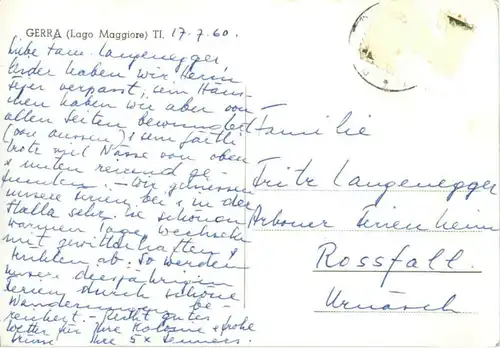 GERRA (Lago Maggiore) TI. 17.7.60.
Liebe Fam. Langenegger!
Leider haben wir Herrn
verpasst, sein Häus-
chen haben wir aber von
allen Seiten bewundert
(von aussen) & sein Gärtli
trotz viel Nässe von oben
& unten reizend ge-
funden. – Wir geniessen
unsere bei & in der
Halla sehr. Die schönen
warmen Tage wechseln
mit gewitterhaften &
kühlen ab. So werden
unsere diesjährigen
Ferien durch schöne
Wanderungen be-
reichert. – Recht gutes
Wetter für Ihre Kolonie & frohe
Grüsse Ihre 5x Senners.
Familie
Fritz Langenegger
Arboner Ferienheim
Rossfall.
Urnäsch